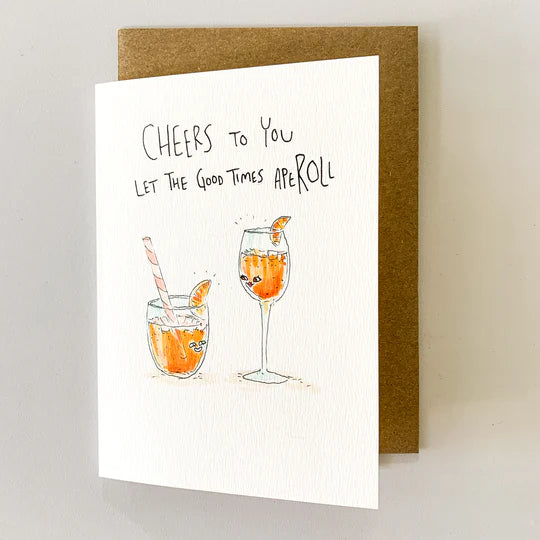 CHEERS TO YOU
LET THE GOOD TIMES APEROLL